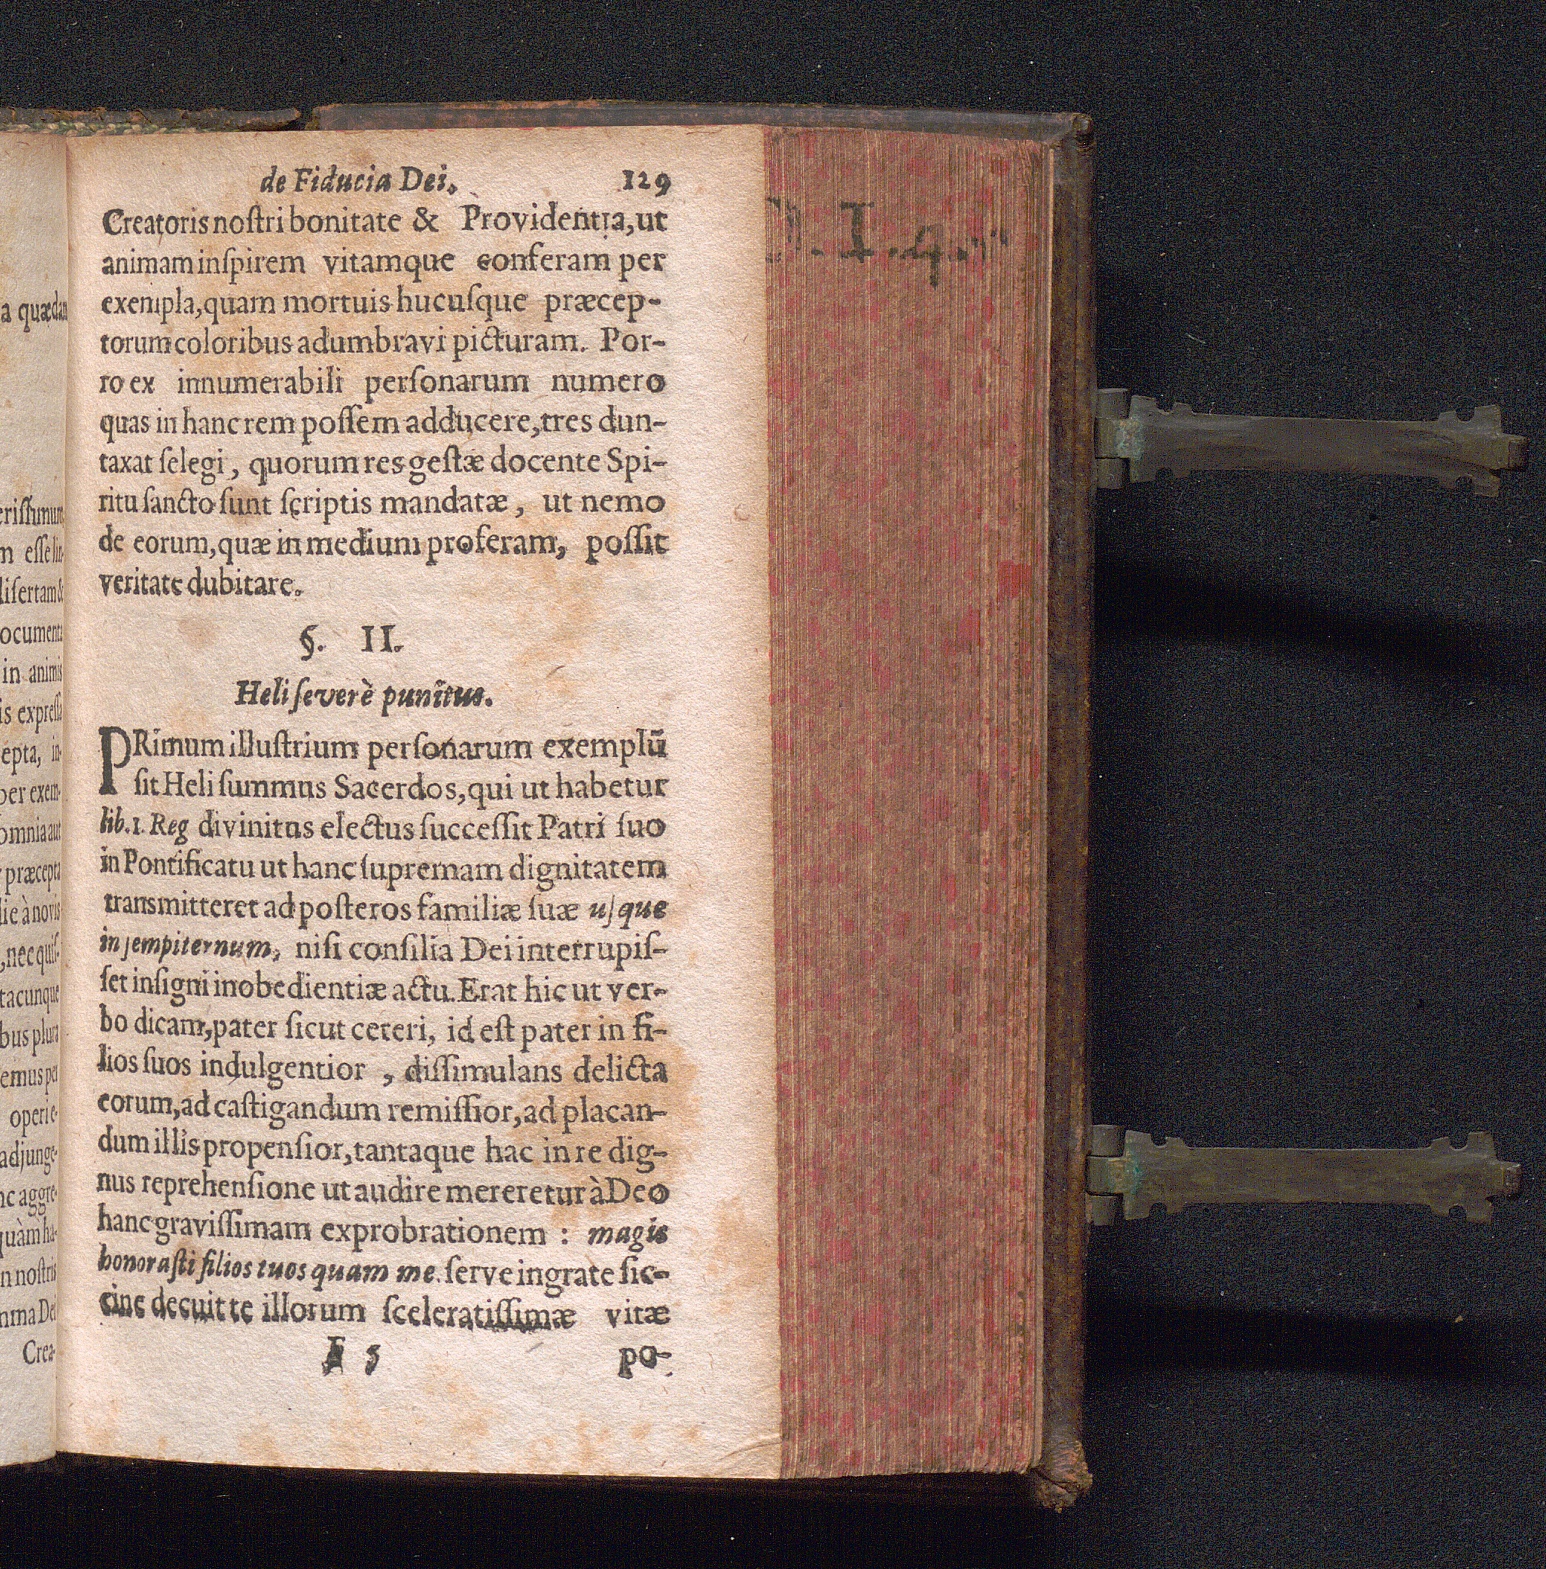 de Fiducia Dei. 129
Creatoris nostri bonitate & Providentia, ut
animam inspirem vitamque conferam per
exempla, quam mortuis hucusque præcep-
torum coloribus adumbravi picturam. Por-
ro ex innumerabili personarum numero
quas in hanc rem possem adducere, tres dun-
taxat selegi, quorum res gestæ docente Spi-
ritu sancto sunt scriptis mandatæ, ut nemo
de eorum, quæ in medium proferam, possit
veritate dubitare.
§. II.
Heli severè punitus.
PRimum illustrium personarum exemplū
sit Heli summus Sacerdos, qui ut habetur
lib. 1. Reg divinitus electus successit Patri suo
in Pontificatu ut hanc supremam dignitatem
transmitteret ad posteros familiæ suæ usque
in sempiternum, nisi consilia Dei interrupis-
set insigni inobedientiæ actu. Erat hic ut ver-
bo dicam, pater sicut ceteri, id est pater in fi-
lios suos indulgentior, dissimulans delicta
eorum, ad castigandum remissior, ad placan-
dum illis propensior, tantaque hac in re dig-
nus reprehensione ut audire mereretur à Deo
hanc gravissimam exprobrationem : magis
honorasti filios tuos quam me. serve ingrate sic-
cine decuit te illorum sceleratissimæ vitæ
5 po-
a quædam
erissimum
m esse
disertam &
ocumenta
in animis
is expressa
epta, in-
per exem-
omnia aut
præcepta
die à novis
, nec quis-
tacunque
bus plura
emus per
operi e-
adjunge-
nc aggre-
quàm ha-
n nostris
mma Dei
Crea-